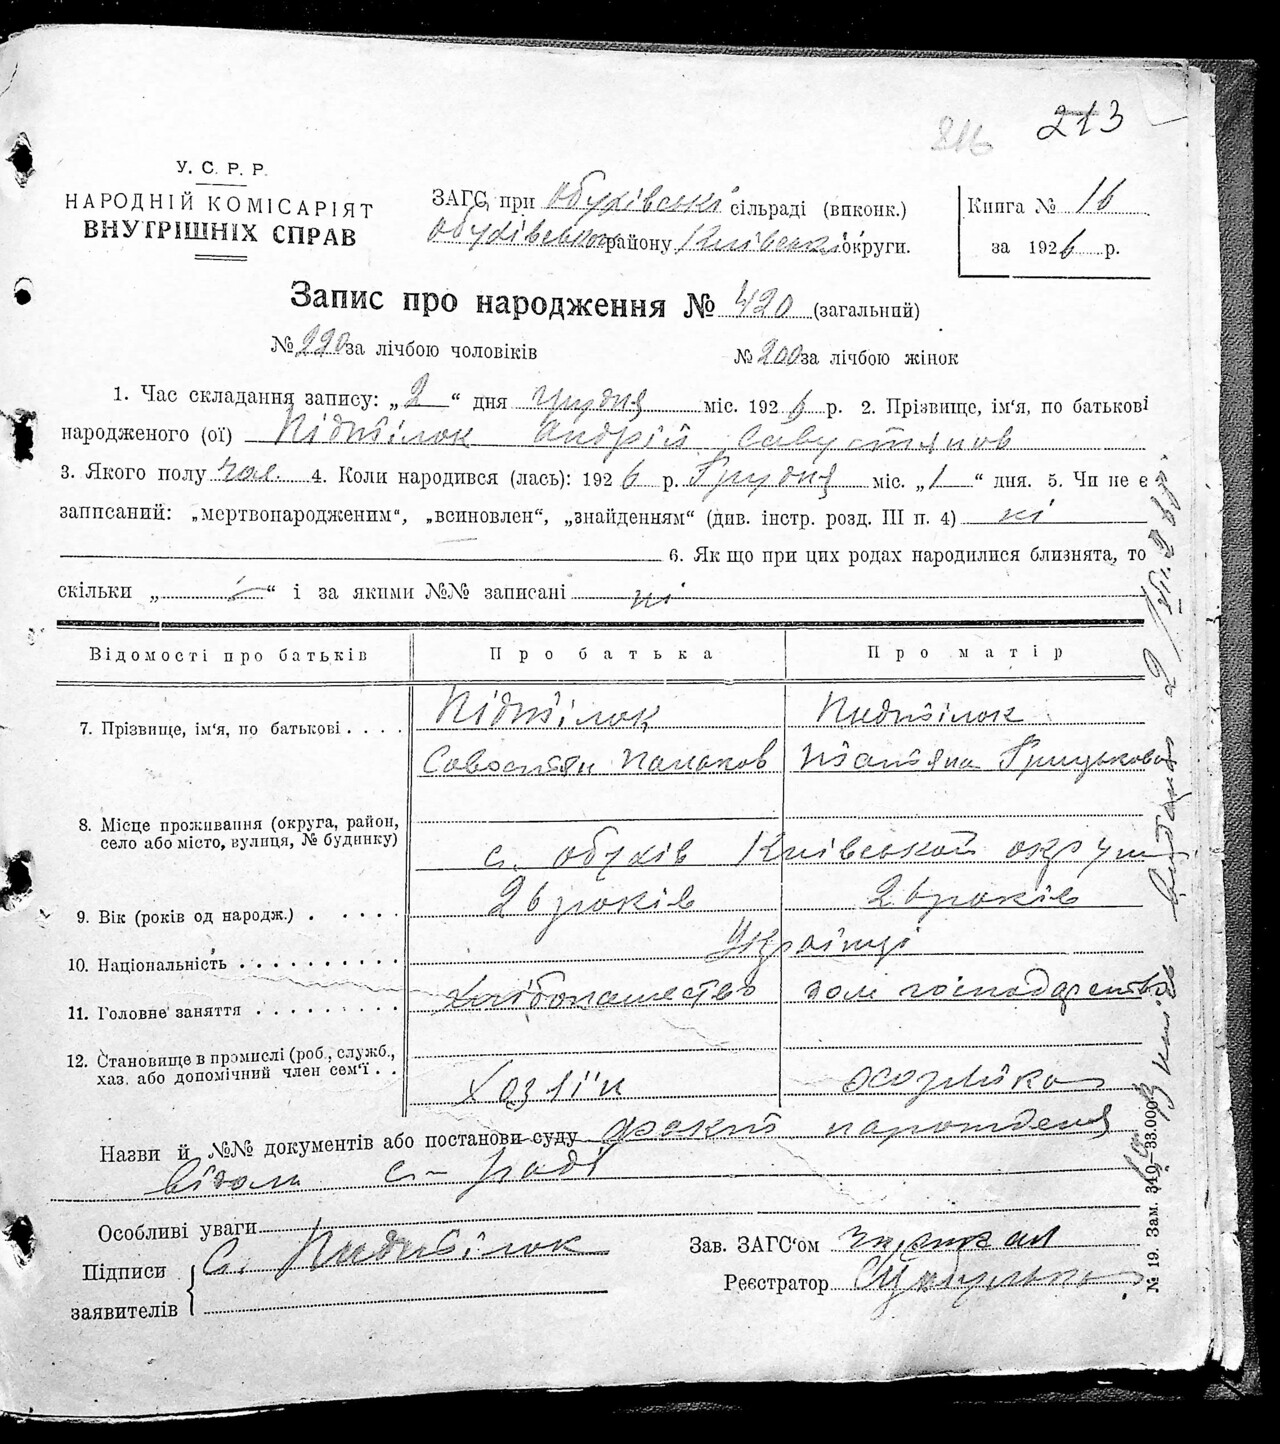 213
216
У. С. Р. Р.
НАРОДНІЙ КОМІСАРІЯТ
ВНУТРІШНІХ СПРАВ
ЗАГС при Обухівські сільраді (виконк.)
Обухівськом району Київські округи.
Книга № 16
за 1926 р.
Запис про народження № 420 (загальний)
№ 220 за лічбою чоловіків № 200 за лічбою жінок
1. Час складання запису: „2“ дня грудня міс. 1926 р. 2. Прізвище, ім'я, по батькові
народженого (ої) Підтілок Андрій Савустянов
3. Якого полу чол. 4. Коли народився (лась): 1926 р. Грудня міс. „1“ дня. 5. Чи не є
записаний: „мертвонародженим“, „всиновлен“, „знайденням“ (див. інстр. розд. III п. 4) ні
6. Як що при цих родах народилися близнята, то
скільки „ “ і за якими №№ записані ні
Відомості про батьків Про батька Про матір
7. Прізвище, ім'я, по батькові . . . . Підтілок Пидтілок
Савостян Панасов Татьяна Грицькова
8. Місце проживання (округа, район,
село або місто, вулиця, № будинку)
с. Обухів Київськой округи
9. Вік (років од народж.) . . . . . 26 років 26 років
10. Національність . . . . . . . . . . Українці
11. Головне заняття . . . . . . . . . Хлібопашество дом господарство
12. Становище в промислі (роб., служб.,
хаз. або допомічний член сем'ї . .
Хозяїн хозяйка
Назви й №№ документів або постанови суду факт народження
відом с-раді
Особливі уваги
Підписи
заявителів
С. Пидтілок
Зав. ЗАГС'ом
Реєстратор
№ 19. Зам. 340—33.000